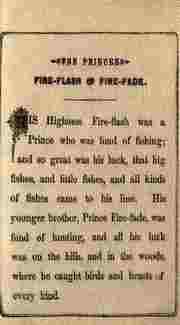 THE PRINCES
FIRE-FLASH & FIRE-FADE.
HIS Highness Fire-flash was a
Prince who was fond of fishing;
and so great was his luck, that big
fishes, and little fishes, and all kinds
of fishes came to his line. His
younger brother, Prince Fire-fade, was
fond of hunting, and all his luck
was on the hills and in the woods,
where he caught birds and beasts of
every kind.